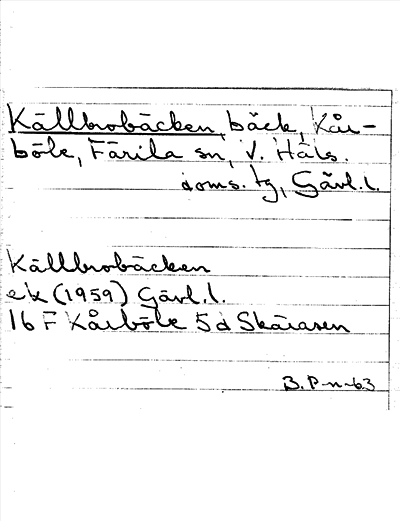 Källbrobäcken, bäck, Kår-
böle, Färila sn, V. Häls.
doms. tg, Gävl. l.
Källbrobäcken
ek (1959) Gävl. l.
16 F Kårböle 5 d Skärasen
B. P-n -63